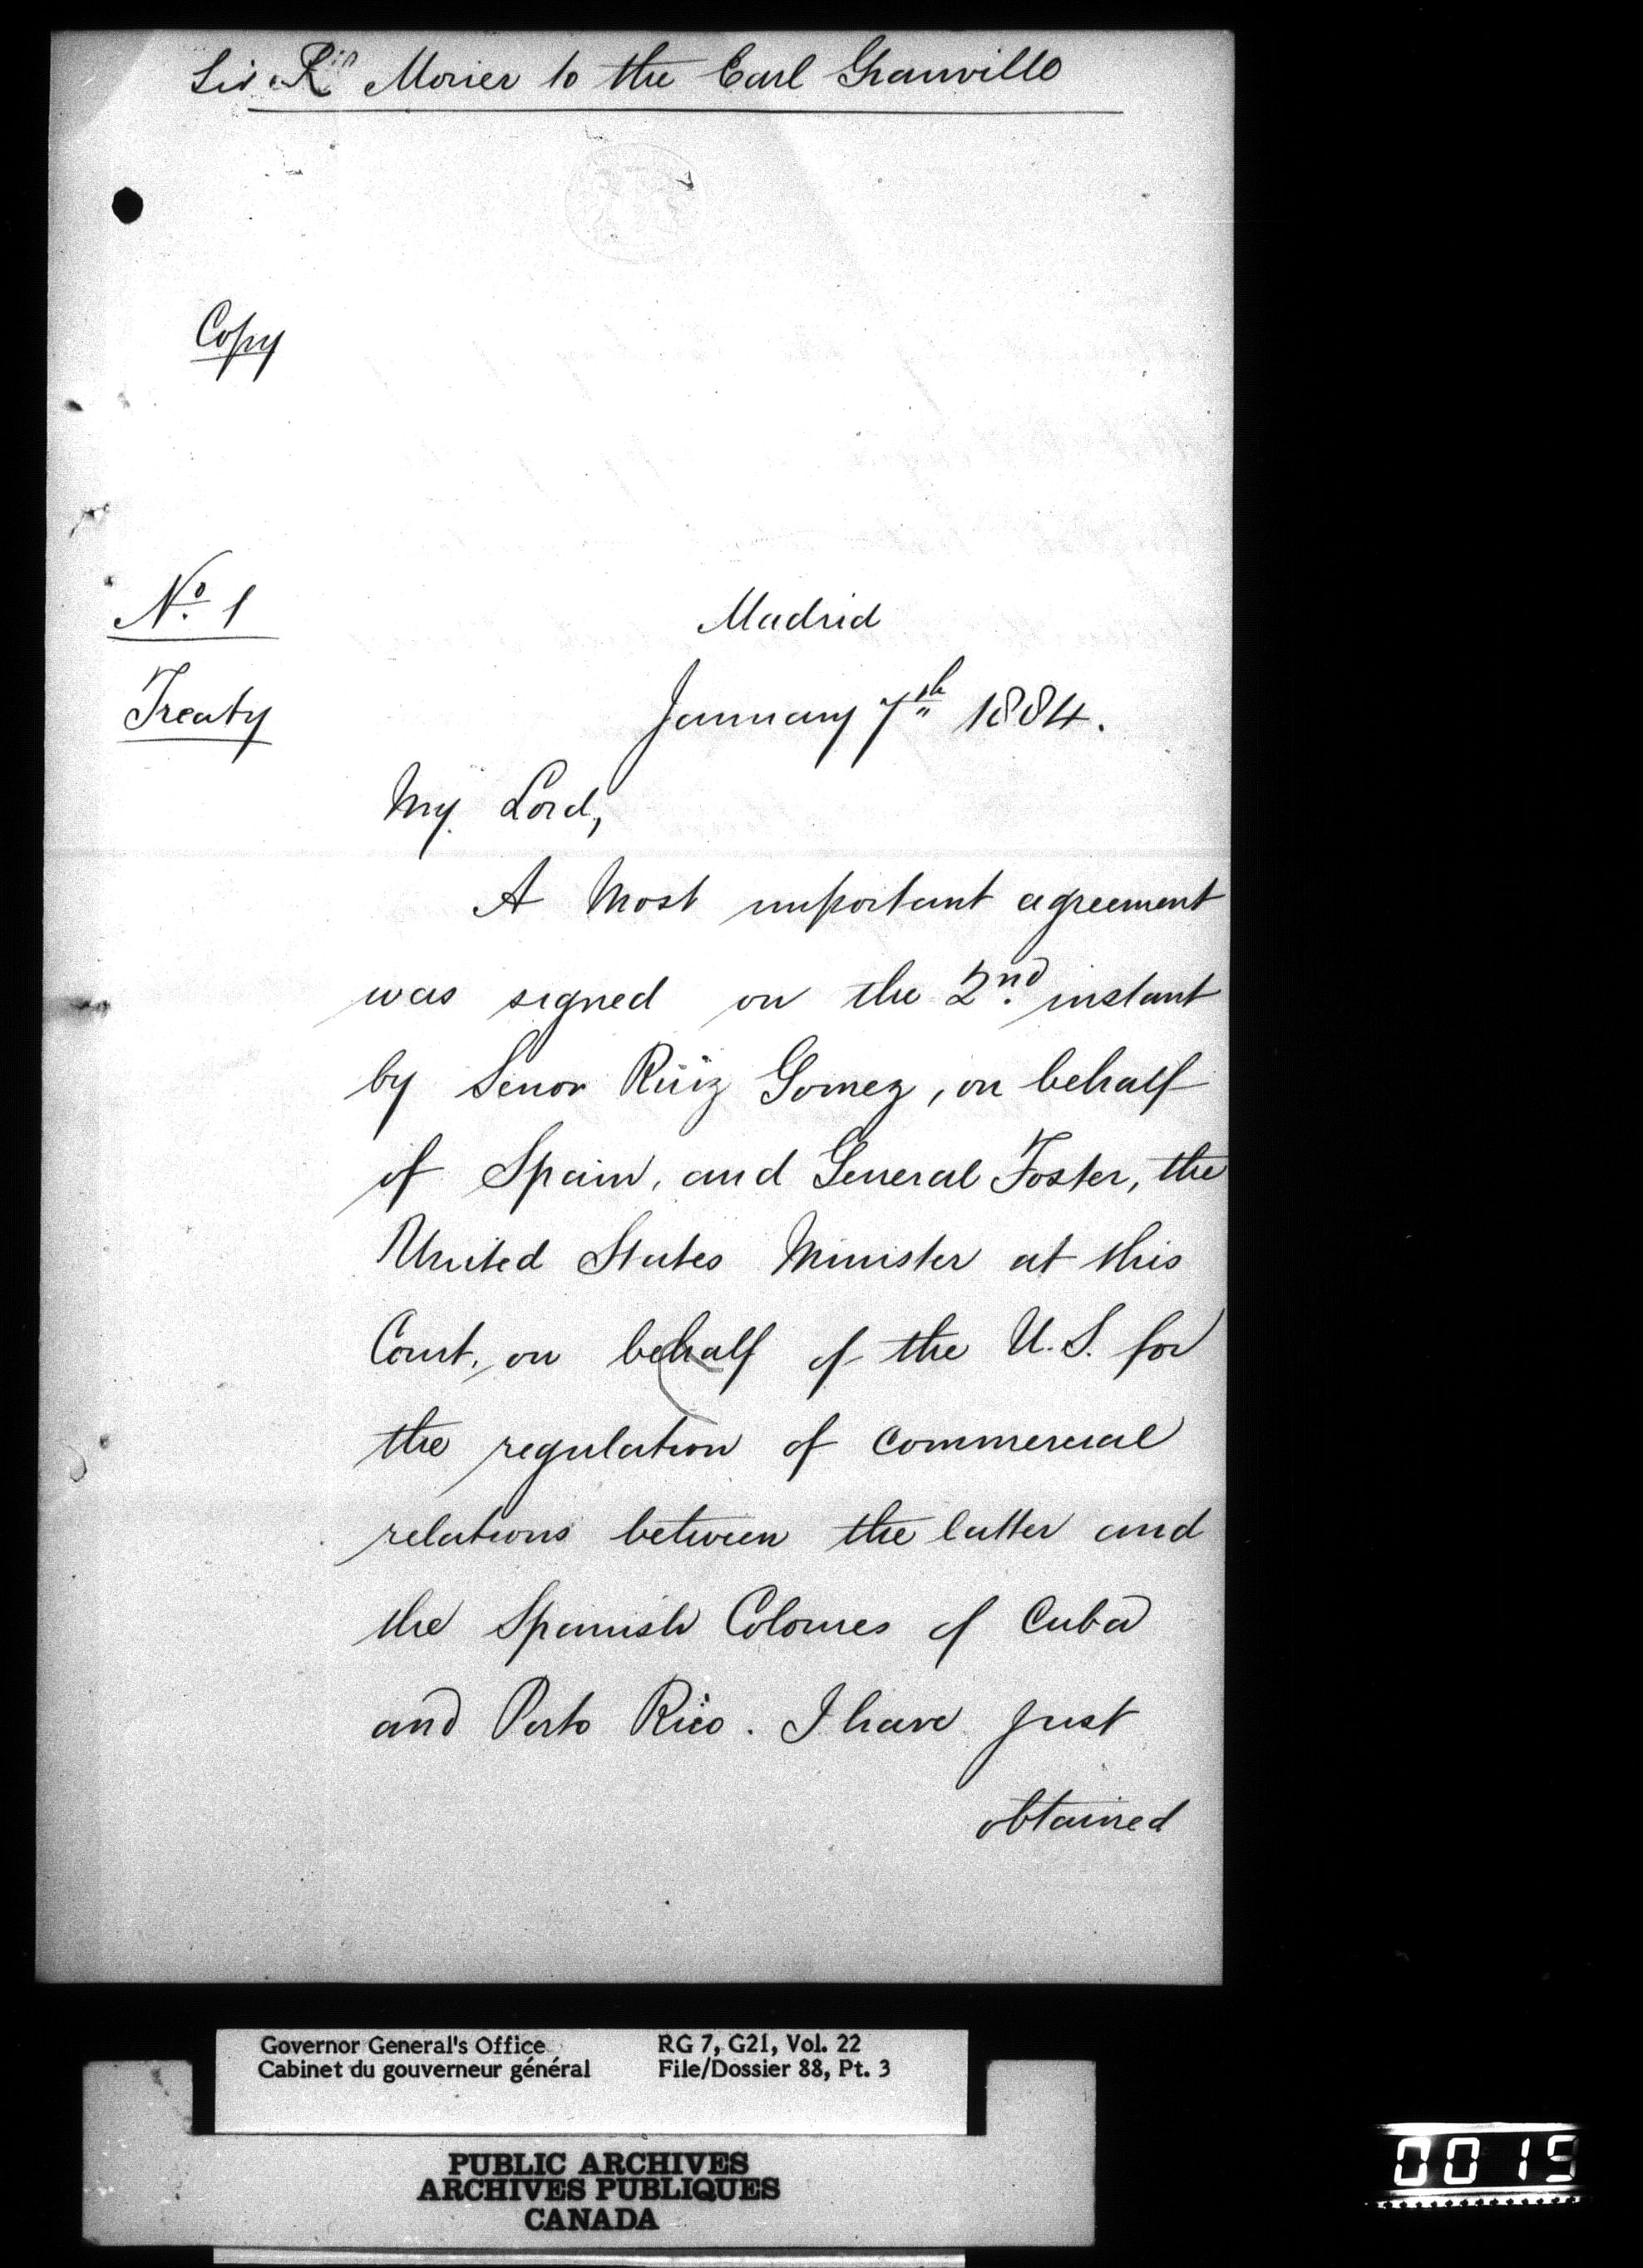 Sir R. Morier to the Earl Granville
Copy
No. 1
Treaty
Madrid
January 7th 1884.
My Lord,
A Most important agreement
was signed on the 2nd. instant
by Senor Ruiz Gomez, on behalf
of Spain, and General Foster, the
United States Minister at this
Court, on behalf of the U.S. for
the regulation of Commercial
relations between the latter and
the Spanish Colonies of Cuba
and Porto Rico. I have just
obtained
Governor General's Office RG 7, G21, Vol. 22
Cabinet du gouverneur général File/Dossier 88, Pt. 3
PUBLIC ARCHIVES
ARCHIVES PUBLIQUES
CANADA
0015